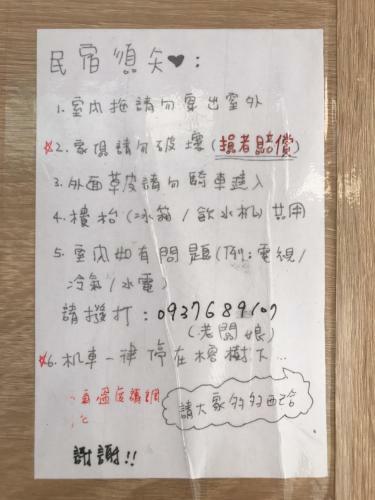 民宿須知♥:
1. 室內拖請勿穿出室外
※2. 家俱請勿破壞(損者賠償)
3. 外面草皮請勿騎車進入
4. 樓枱(冰箱/飲水机)共用
5. 室內如有問題(例:電視/
冷氣/水電)
請撥打:0937689107
(老闆娘)
※6. 机車一律停在樹下...
請大家多多配合
謝謝!!